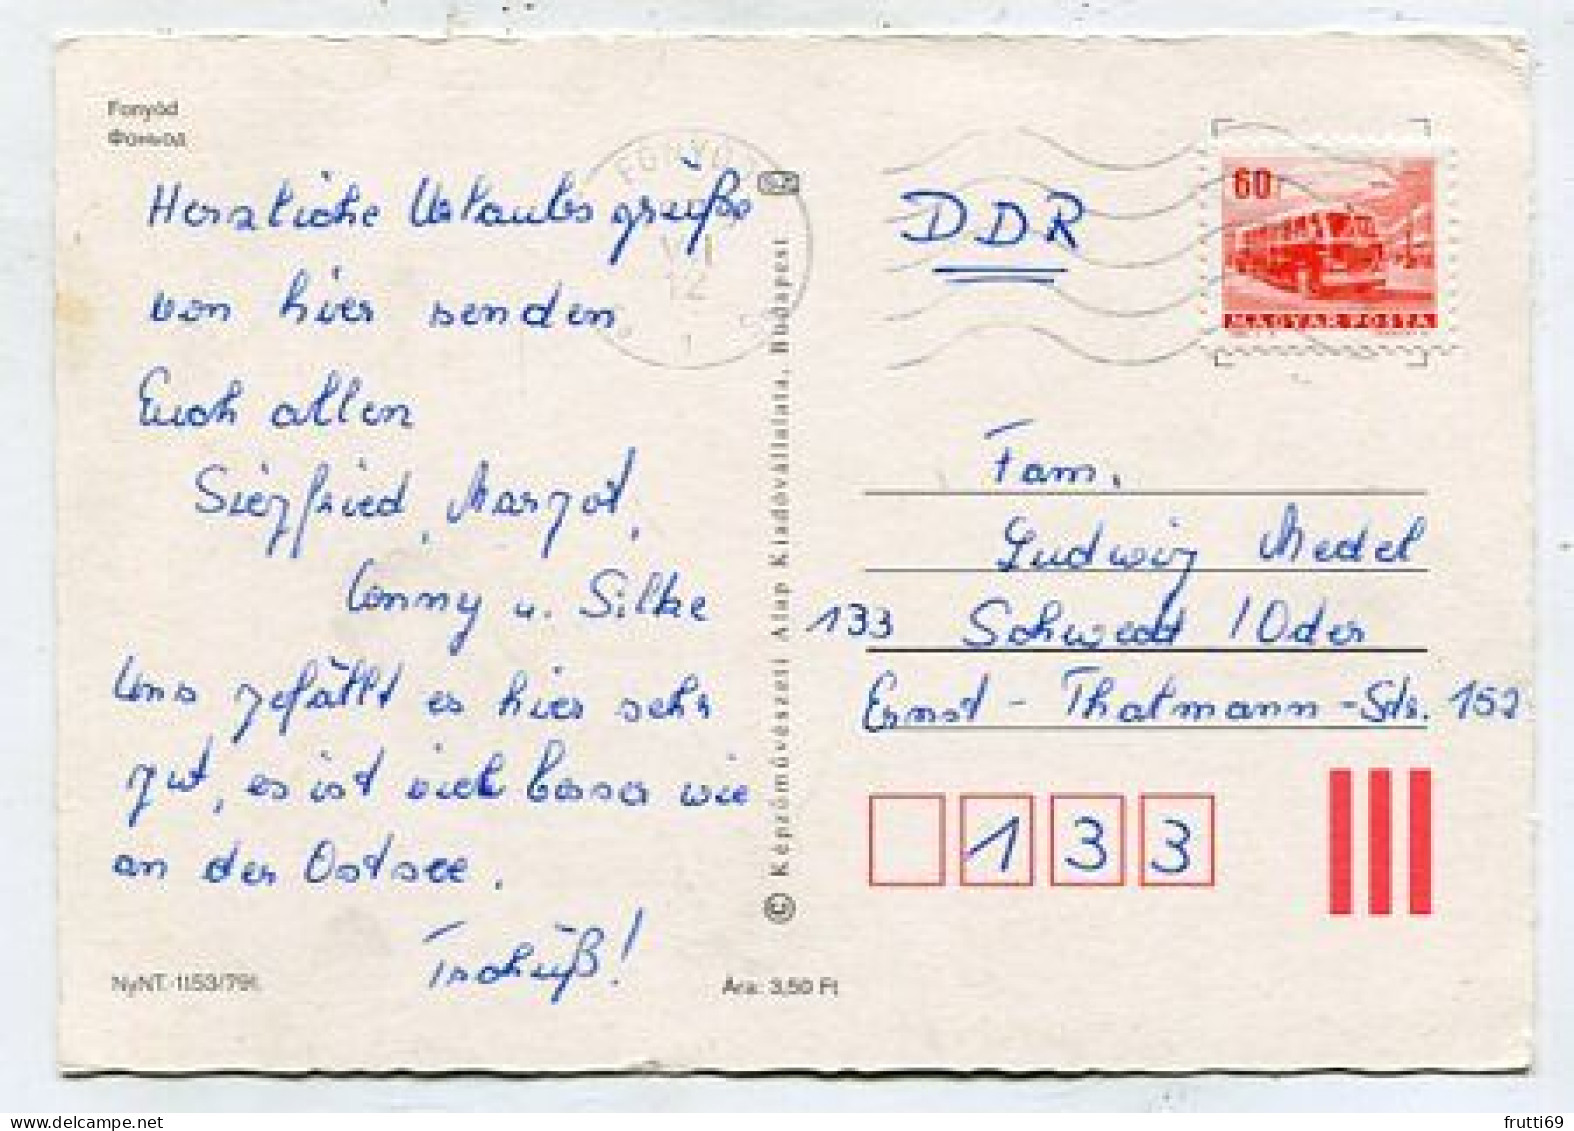 Fonyód
Фоньод
Herzliche Urlaubsgrüße
von hier senden
Euch allen
Siegfried, Margot,
Conny u. Silke
Uns gefällt es hier sehr
gut, es ist viel besser wie
an der Ostsee.
Tschüß!
NyNT.-1153/791.
Ára: 3,50 Ft
© Képzőművészeti Alap Kiadóvállalata, Budapest
FONYÓD
VII
12
DDR
60 f
MAGYAR POSTA
Fam.
Ludwig Medel
133 Schwedt / Oder
Ernst-Thälmann-Str. 152
133
frutti69